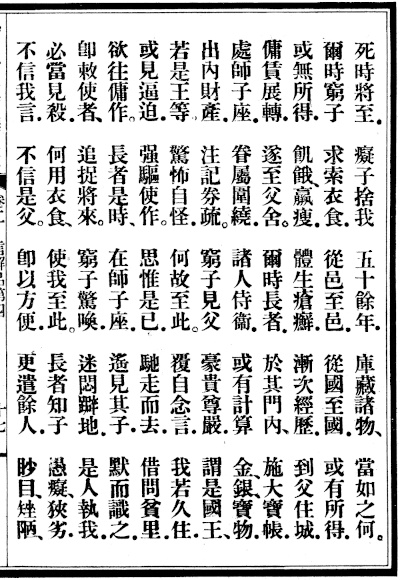 死時將至．癡子捨我．五十餘年．庫藏諸物、當如之何。
爾時窮子．求索衣食．從邑至邑．從國至國．或有所得．
或無所得．飢餓、羸瘦．體生瘡癬．漸次經歷．到父住城．
傭賃展轉．遂至父舍。爾時長者．於其門內、施大寶帳．
處師子座．眷屬圍繞．諸人侍衞．或有計算．金、銀、寶物．
出內財產．注記券疏。窮子見父．豪貴尊嚴．謂是國王、
若是王等．驚怖自怪．何故至此。覆自念言．我若久住．
或見逼迫．强驅使作。思惟是已．馳走而去．借問貧里．
欲往傭作。長者是時、在師子座．遙見其子．默而識之．
卽敕使者、追捉將來。窮子驚喚．迷悶躃地．是人執我．
必當見殺．何用衣食、使我至此。長者知子．愚癡狹劣．
不信我言．不信是父．卽以方便．更遣餘人．眇目、矬陋、